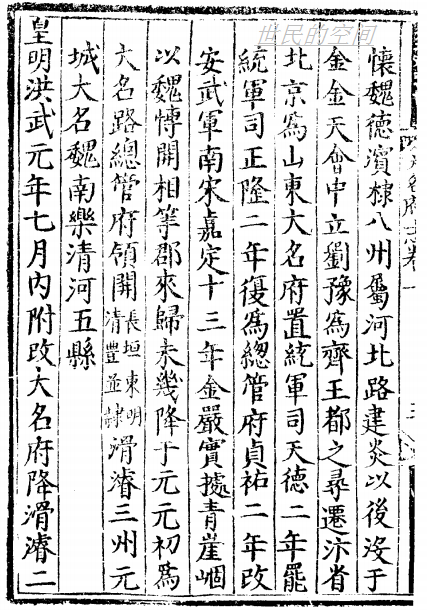 世民的空间
懷魏德濱棣八州屬河北路建炎以後沒于
金金天會中立劉豫爲齊王都之尋遷汴省
北京爲山東大名府置統軍司天德二年罷
統軍司正隆二年復爲緫管府貞祐二年改
安武軍南宋嘉定十三年金嚴實據青崖崓
以魏愽開相等郡來歸未幾降于元元初爲
大名路緫管府領開長垣東明清豐並隷滑濬三州元
城大名魏南樂清河五縣
皇明洪武元年七月內附改大名府降滑濬二